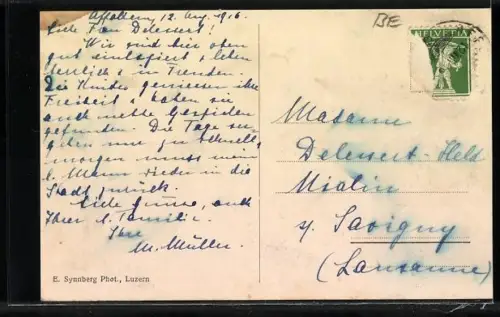 Affoltern, 12. Aug. 1916.
Liebe Frau Delessert!
Wir sind hier oben
gut einlogiert & leben
herrlich & in Freuden.
Die Kinder geniessen ihre
Freiheit & haben sie
auch nette Gespielen
gefunden. Die Tage ver-
gehen nur zu schnell,
morgen muss mein
l. Mann wieder in die
Stadt zurück.
Liebe Grüsse, auch
Ihrer l. Familie.
Ihre
M. Müller.
E. Synnberg Phot., Luzern
BE
HELVETIA
Madame
Delessert-Held
s/ Savigny
(Lausanne)